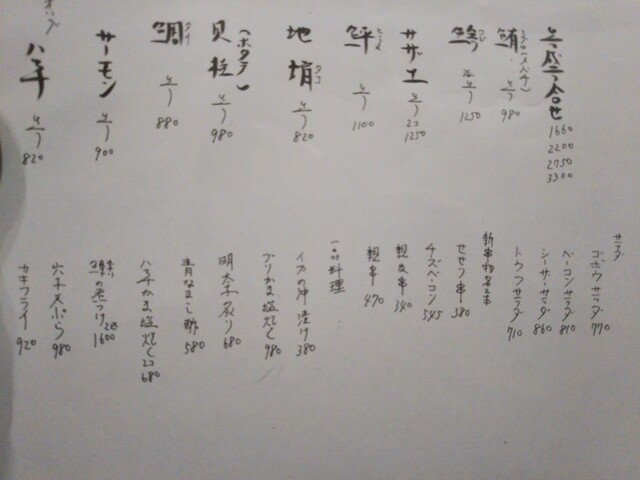 造り盛り合せ
1660
2200
2750
3300
鮪 造り 980
造り 1250
サザエ 造り 2コ 1250
鮃 ヒラメ 造り 1100
地蛸 タコ 造り 820
貝柱（ホタテ） 造り 980
鯛 タイ 造り 880
サーモン 造り 900
ハマチ 造り 820
サラダ
ゴボウサラダ 770
ベーコンサラダ 810
シーザーサラダ 860
トウフサラダ 710
新串物各2本
せせり串 380
チズベーコン 545
親皮串 340
親串 470
一品料理
イカの沖漬け 380
ブリかま塩焼く 980
明太子炙り 680
青なまこ酢 580
ハマチかま塩焼く 2コ 680
の煮つけ 2匹 1600
穴子天ぷら 980
カキフライ 920